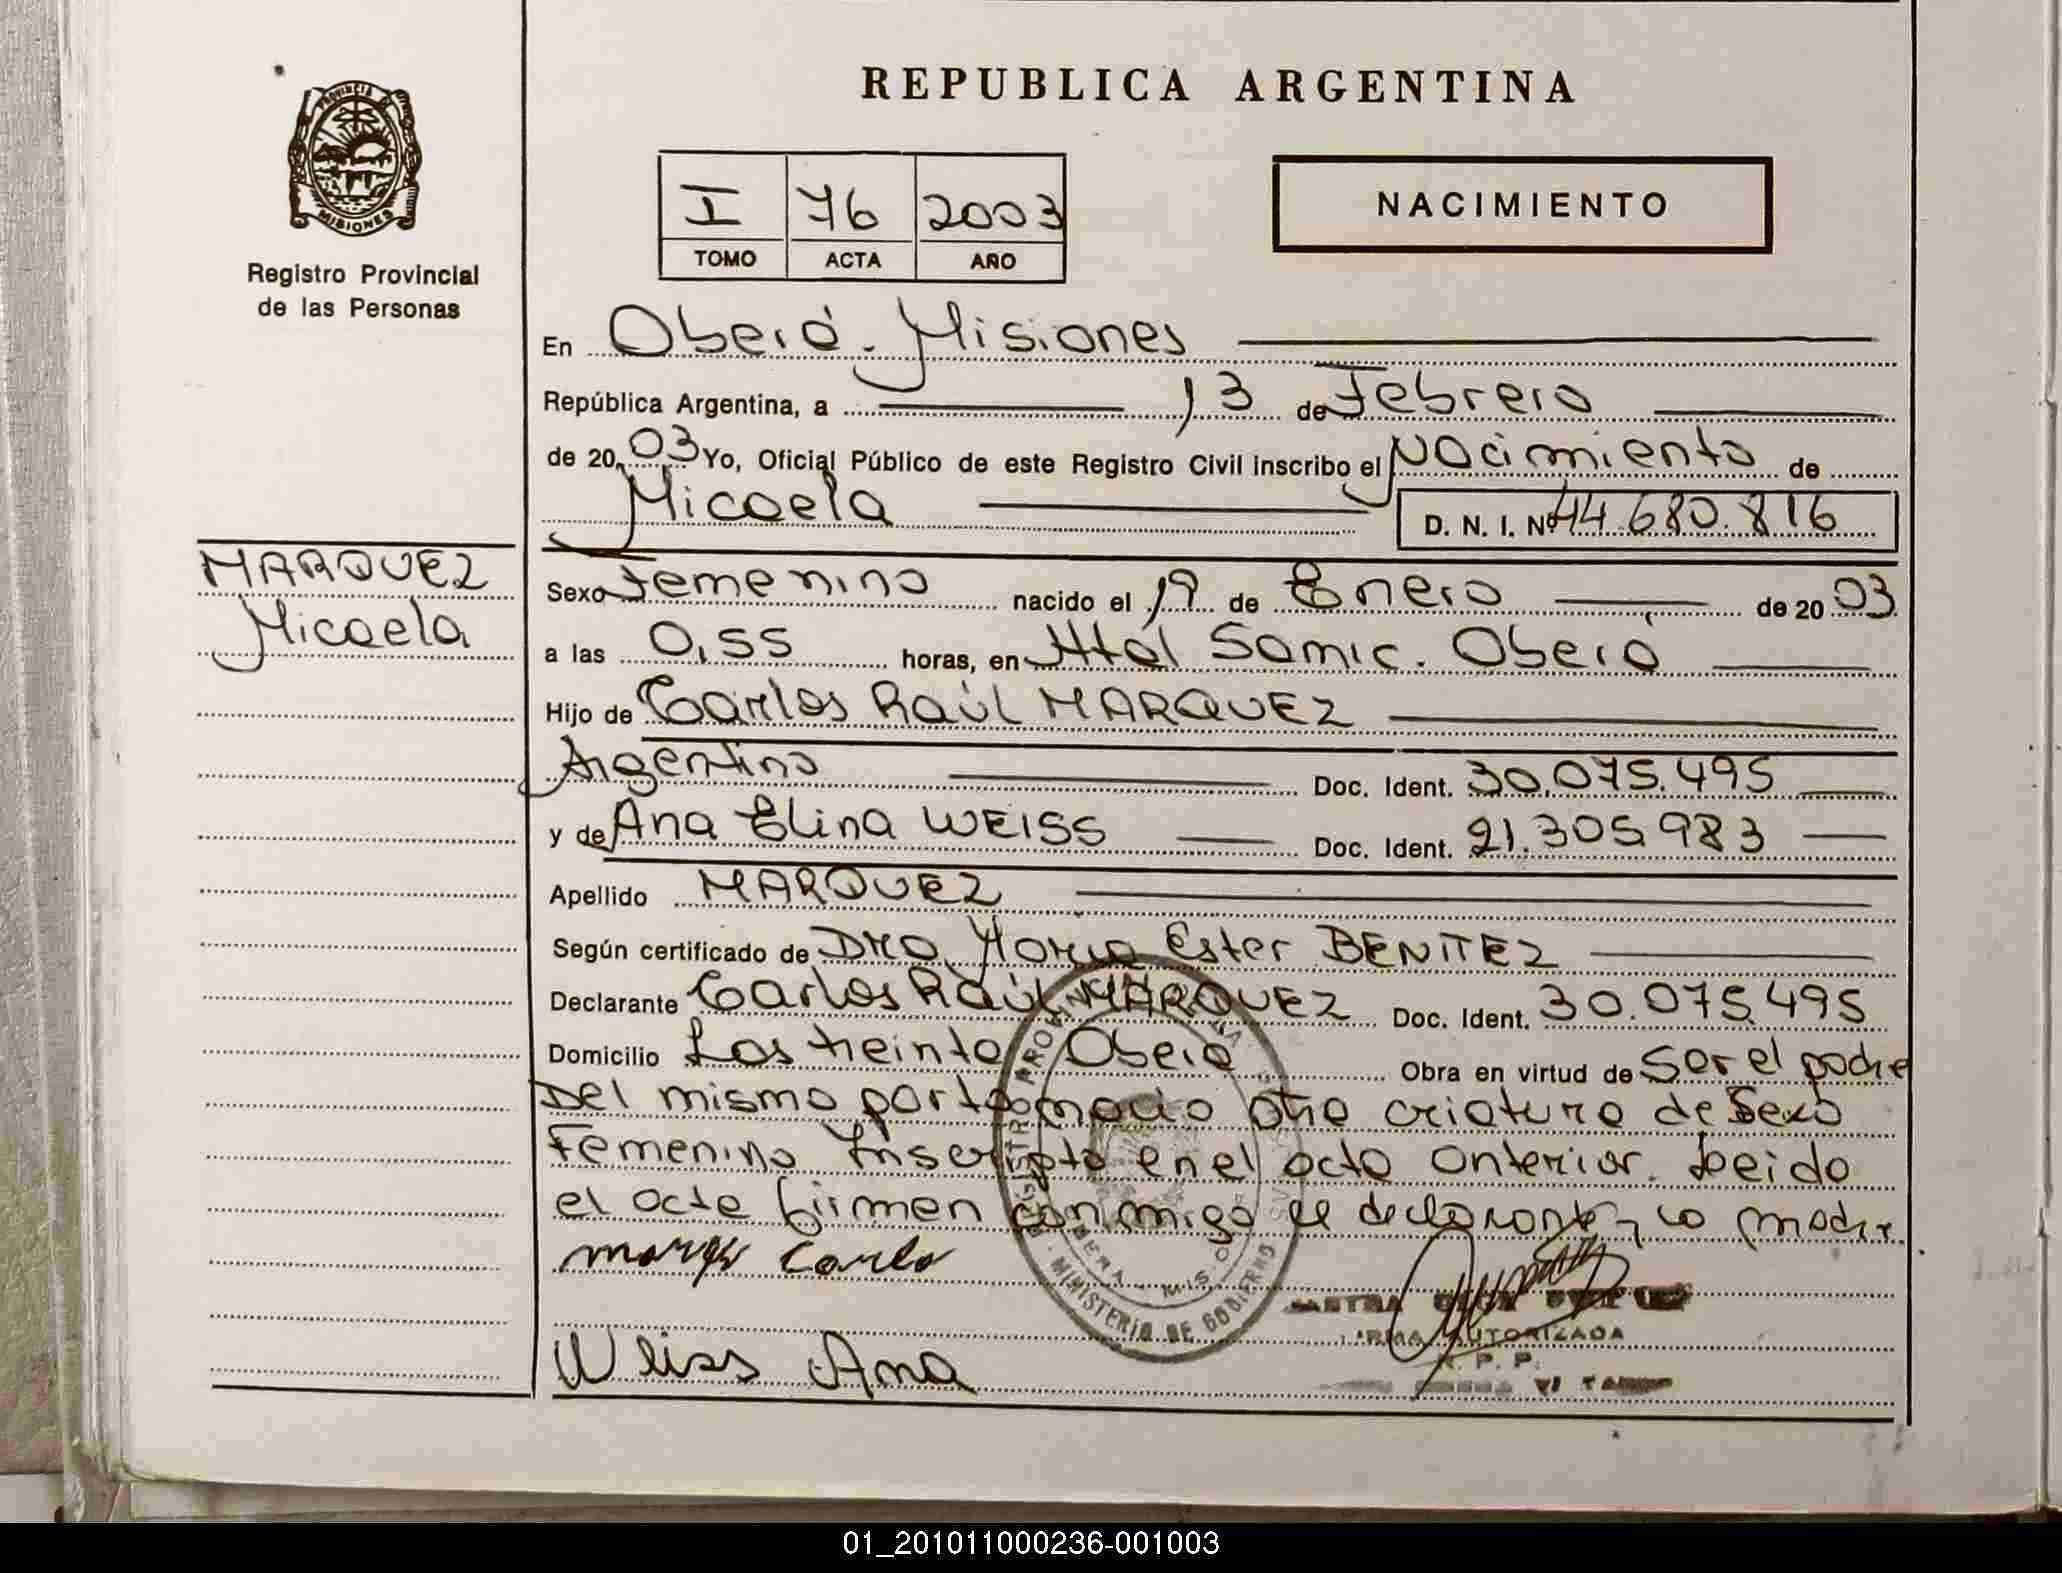 PROVINCIA DE
MISIONES
Registro Provincial
de las Personas
REPUBLICA ARGENTINA
I 76 2003
TOMO ACTA AÑO
NACIMIENTO
En Oberá. Misiones
República Argentina, a 13 de Febrero
de 20 03 Yo, Oficial Público de este Registro Civil inscribo el Nacimiento de
Micaela D. N. I. Nº 44.680.816
MARQUEZ
Micaela
Sexo Femenino nacido el 19 de Enero de 20 03
a las 0,55 horas, en Htal Samic. Oberá
Hijo de Carlos Raúl MARQUEZ
Argentino Doc. Ident. 30.075.495
y de Ana Elina WEISS Doc. Ident. 21.305.983
Apellido MARQUEZ
Según certificado de Dra. María Ester BENITEZ
Declarante Carlos Raúl MARQUEZ Doc. Ident. 30.075.495
Domicilio Los treinta Oberá Obra en virtud de Ser el padre
Del mismo parto nacio otra criatura de Sexo
Femenino Inscripta en el acta anterior. Leida
el acta firman conmigo el declarante y la madre.
Carlos
Weiss Ana
MINISTERIO DE GOBIERNO
FIRMA AUTORIZADA
R. P. P.
01_201011000236-001003